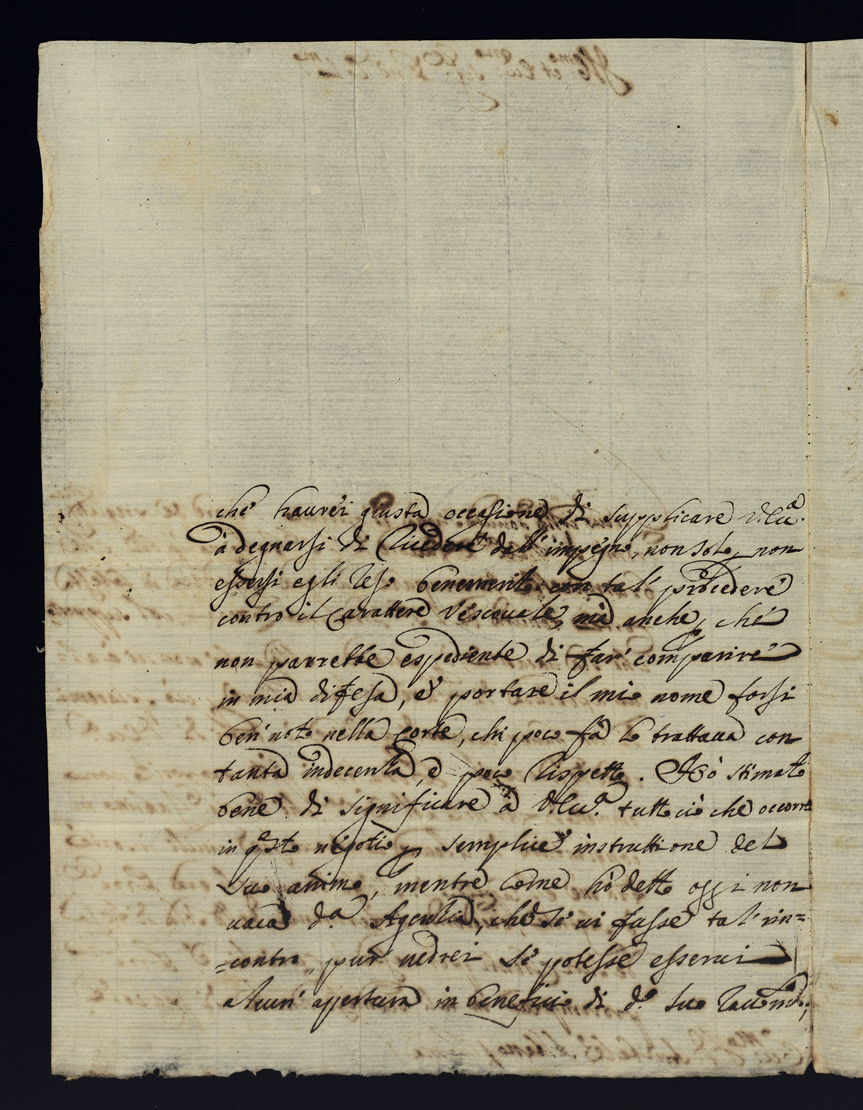 che haurei giusta occasione di supplicare V. Ecc.ª
à degnarsi di ricedere dall'impegno, non solo non
essersi egli reso benemerito con tal' procedere
contro il Carattere Vescovale, mà anche, che
non parrebbe espediente di far' comparire
in mia difesa, e' portare il mio nome forsi
ben' noto nella Corte, chi poco fà lo trattava con
tanta indecenza, e poco rispetto. Hò stimato
bene di significare à V. Ecc.ª tutto ciò che occorre
in q.sto negotio semplice instruttione del
suo animo, mentre come hò detto oggi non
vaca d.ª Agentia, che se vi fusse tal' rin=
=contro pur vedrei se potesse esserci
alcun' apertura in beneficio di d.º suo Raccom.do,